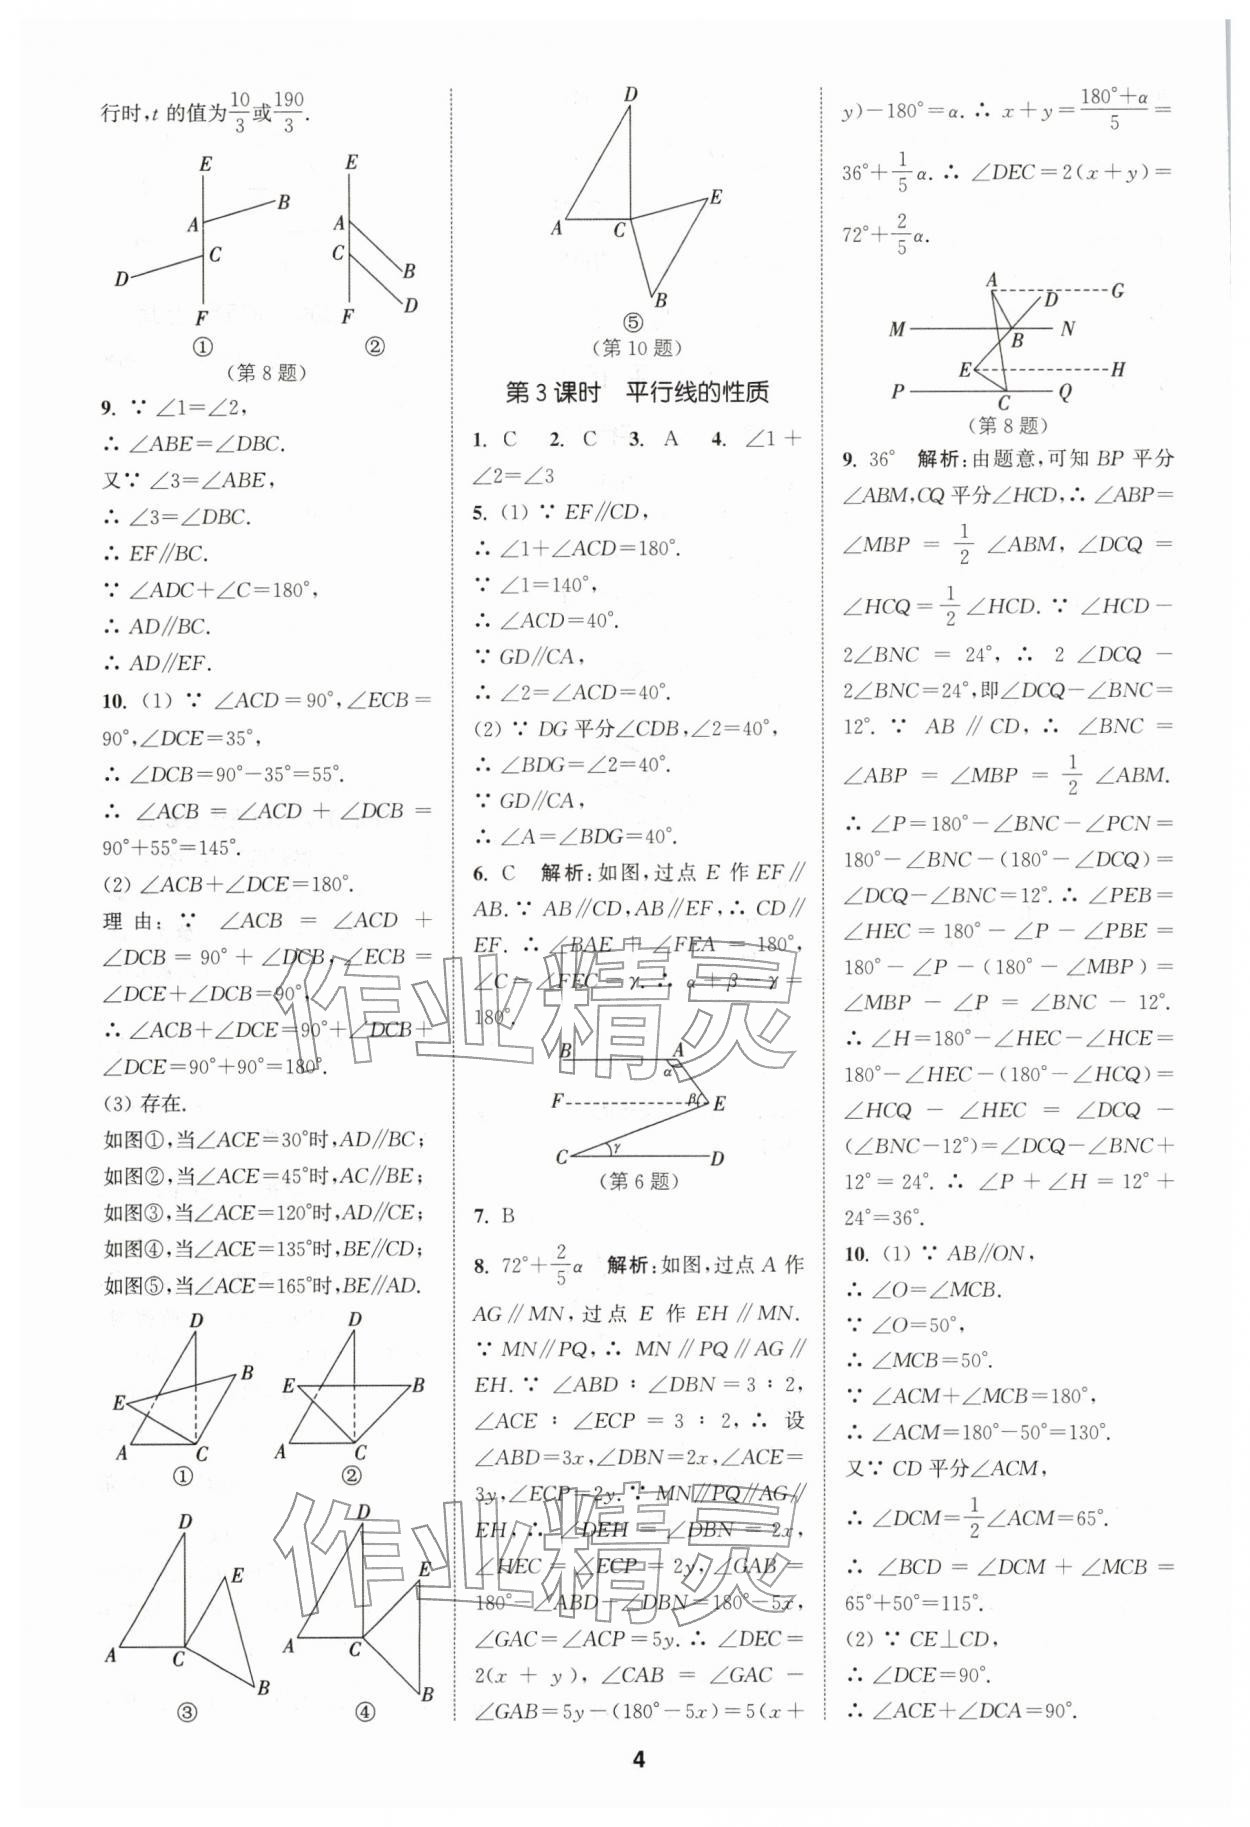 行时,t 的值为10/3或190/3.
E
B
A
C
D
F
①
E
A
C
B
D
F
②
(第 8 题)
9. ∵ ∠1=∠2,
∴ ∠ABE=∠DBC.
又∵ ∠3=∠ABE,
∴ ∠3=∠DBC.
∴ EF∥BC.
∵ ∠ADC+∠C=180°,
∴ AD∥BC.
∴ AD∥EF.
10. (1) ∵ ∠ACD=90°,∠ECB=
90°,∠DCE=35°,
∴ ∠DCB=90°-35°=55°.
∴ ∠ACB = ∠ACD + ∠DCB =
90°+55°=145°.
(2) ∠ACB+∠DCE=180°.
理由: ∵ ∠ACB = ∠ACD +
∠DCB = 90° + ∠DCB, ∠ECB =
∠DCE+∠DCB=90°,
∴ ∠ACB+∠DCE=90°+∠DCB+
∠DCE=90°+90°=180°.
(3) 存在.
如图①,当∠ACE=30°时,AD∥BC;
如图②,当∠ACE=45°时,AC∥BE;
如图③,当∠ACE=120°时,AD∥CE;
如图④,当∠ACE=135°时,BE∥CD;
如图⑤,当∠ACE=165°时,BE∥AD.
D
B
E
A
C
①
D
E
B
A
C
②
D
E
A
C
B
③
D
E
A
C
B
④
D
E
A
C
B
⑤
(第 10 题)
第 3 课时 平行线的性质
1. C 2. C 3. A 4. ∠1+
∠2=∠3
5. (1) ∵ EF∥CD,
∴ ∠1+∠ACD=180°.
∵ ∠1=140°,
∴ ∠ACD=40°.
∵ GD∥CA,
∴ ∠2=∠ACD=40°.
(2) ∵ DG 平分∠CDB,∠2=40°,
∴ ∠BDG=∠2=40°.
∵ GD∥CA,
∴ ∠A=∠BDG=40°.
6. C 解析:如图,过点 E 作 EF∥
AB. ∵ AB∥CD,AB∥EF,∴ CD∥
EF. ∴ ∠BAE + ∠FEA = 180°,
∠C=∠FEC=γ. ∴ α+β-γ=
180°.
B
A
α
F
β
E
C
γ
D
(第 6 题)
7. B
8. 72°+2/5α 解析:如图,过点 A 作
AG∥MN,过点 E 作 EH∥MN.
∵ MN∥PQ,∴ MN∥PQ∥AG∥
EH. ∵ ∠ABD∶∠DBN=3∶2,
∠ACE∶∠ECP=3∶2,∴ 设
∠ABD=3x,∠DBN=2x,∠ACE=
3y,∠ECP=2y. ∵ MN∥PQ∥AG∥
EH,∴ ∠DEH=∠DBN=2x,
∠HEC=∠ECP=2y,∠GAB=
180°-∠ABD-∠DBN=180°-5x,
∠GAC=∠ACP=5y. ∴ ∠DEC=
2(x+y),∠CAB=∠GAC-
∠GAB=5y-(180°-5x)=5(x+
y)-180°=α. ∴ x+y=180°+α/5=
36°+1/5α. ∴ ∠DEC=2(x+y)=
72°+2/5α.
A
G
D
M
B
N
E
H
P
C
Q
(第 8 题)
9. 36° 解析:由题意,可知 BP 平分
∠ABM,CQ 平分∠HCD,∴ ∠ABP=
∠MBP=1/2∠ABM,∠DCQ=
∠HCQ=1/2∠HCD. ∵ ∠HCD-
2∠BNC=24°,∴ 2∠DCQ-
2∠BNC=24°,即∠DCQ-∠BNC=
12°. ∵ AB∥CD,∴ ∠BNC=
∠ABP=∠MBP=1/2∠ABM.
∴ ∠P=180°-∠BNC-∠PCN=
180°-∠BNC-(180°-∠DCQ)=
∠DCQ-∠BNC=12°. ∴ ∠PEB=
∠HEC=180°-∠P-∠PBE=
180°-∠P-(180°-∠MBP)=
∠MBP-∠P=∠BNC-12°.
∴ ∠H=180°-∠HEC-∠HCE=
180°-∠HEC-(180°-∠HCQ)=
∠HCQ-∠HEC=∠DCQ-
(∠BNC-12°)=∠DCQ-∠BNC+
12°=24°. ∴ ∠P+∠H=12°+
24°=36°.
10. (1) ∵ AB∥ON,
∴ ∠O=∠MCB.
∵ ∠O=50°,
∴ ∠MCB=50°.
∵ ∠ACM+∠MCB=180°,
∴ ∠ACM=180°-50°=130°.
又∵ CD 平分∠ACM,
∴ ∠DCM=1/2∠ACM=65°.
∴ ∠BCD=∠DCM+∠MCB=
65°+50°=115°.
(2) ∵ CE⊥CD,
∴ ∠DCE=90°.
∴ ∠ACE+∠DCA=90°.
作业精灵
作业精灵
4